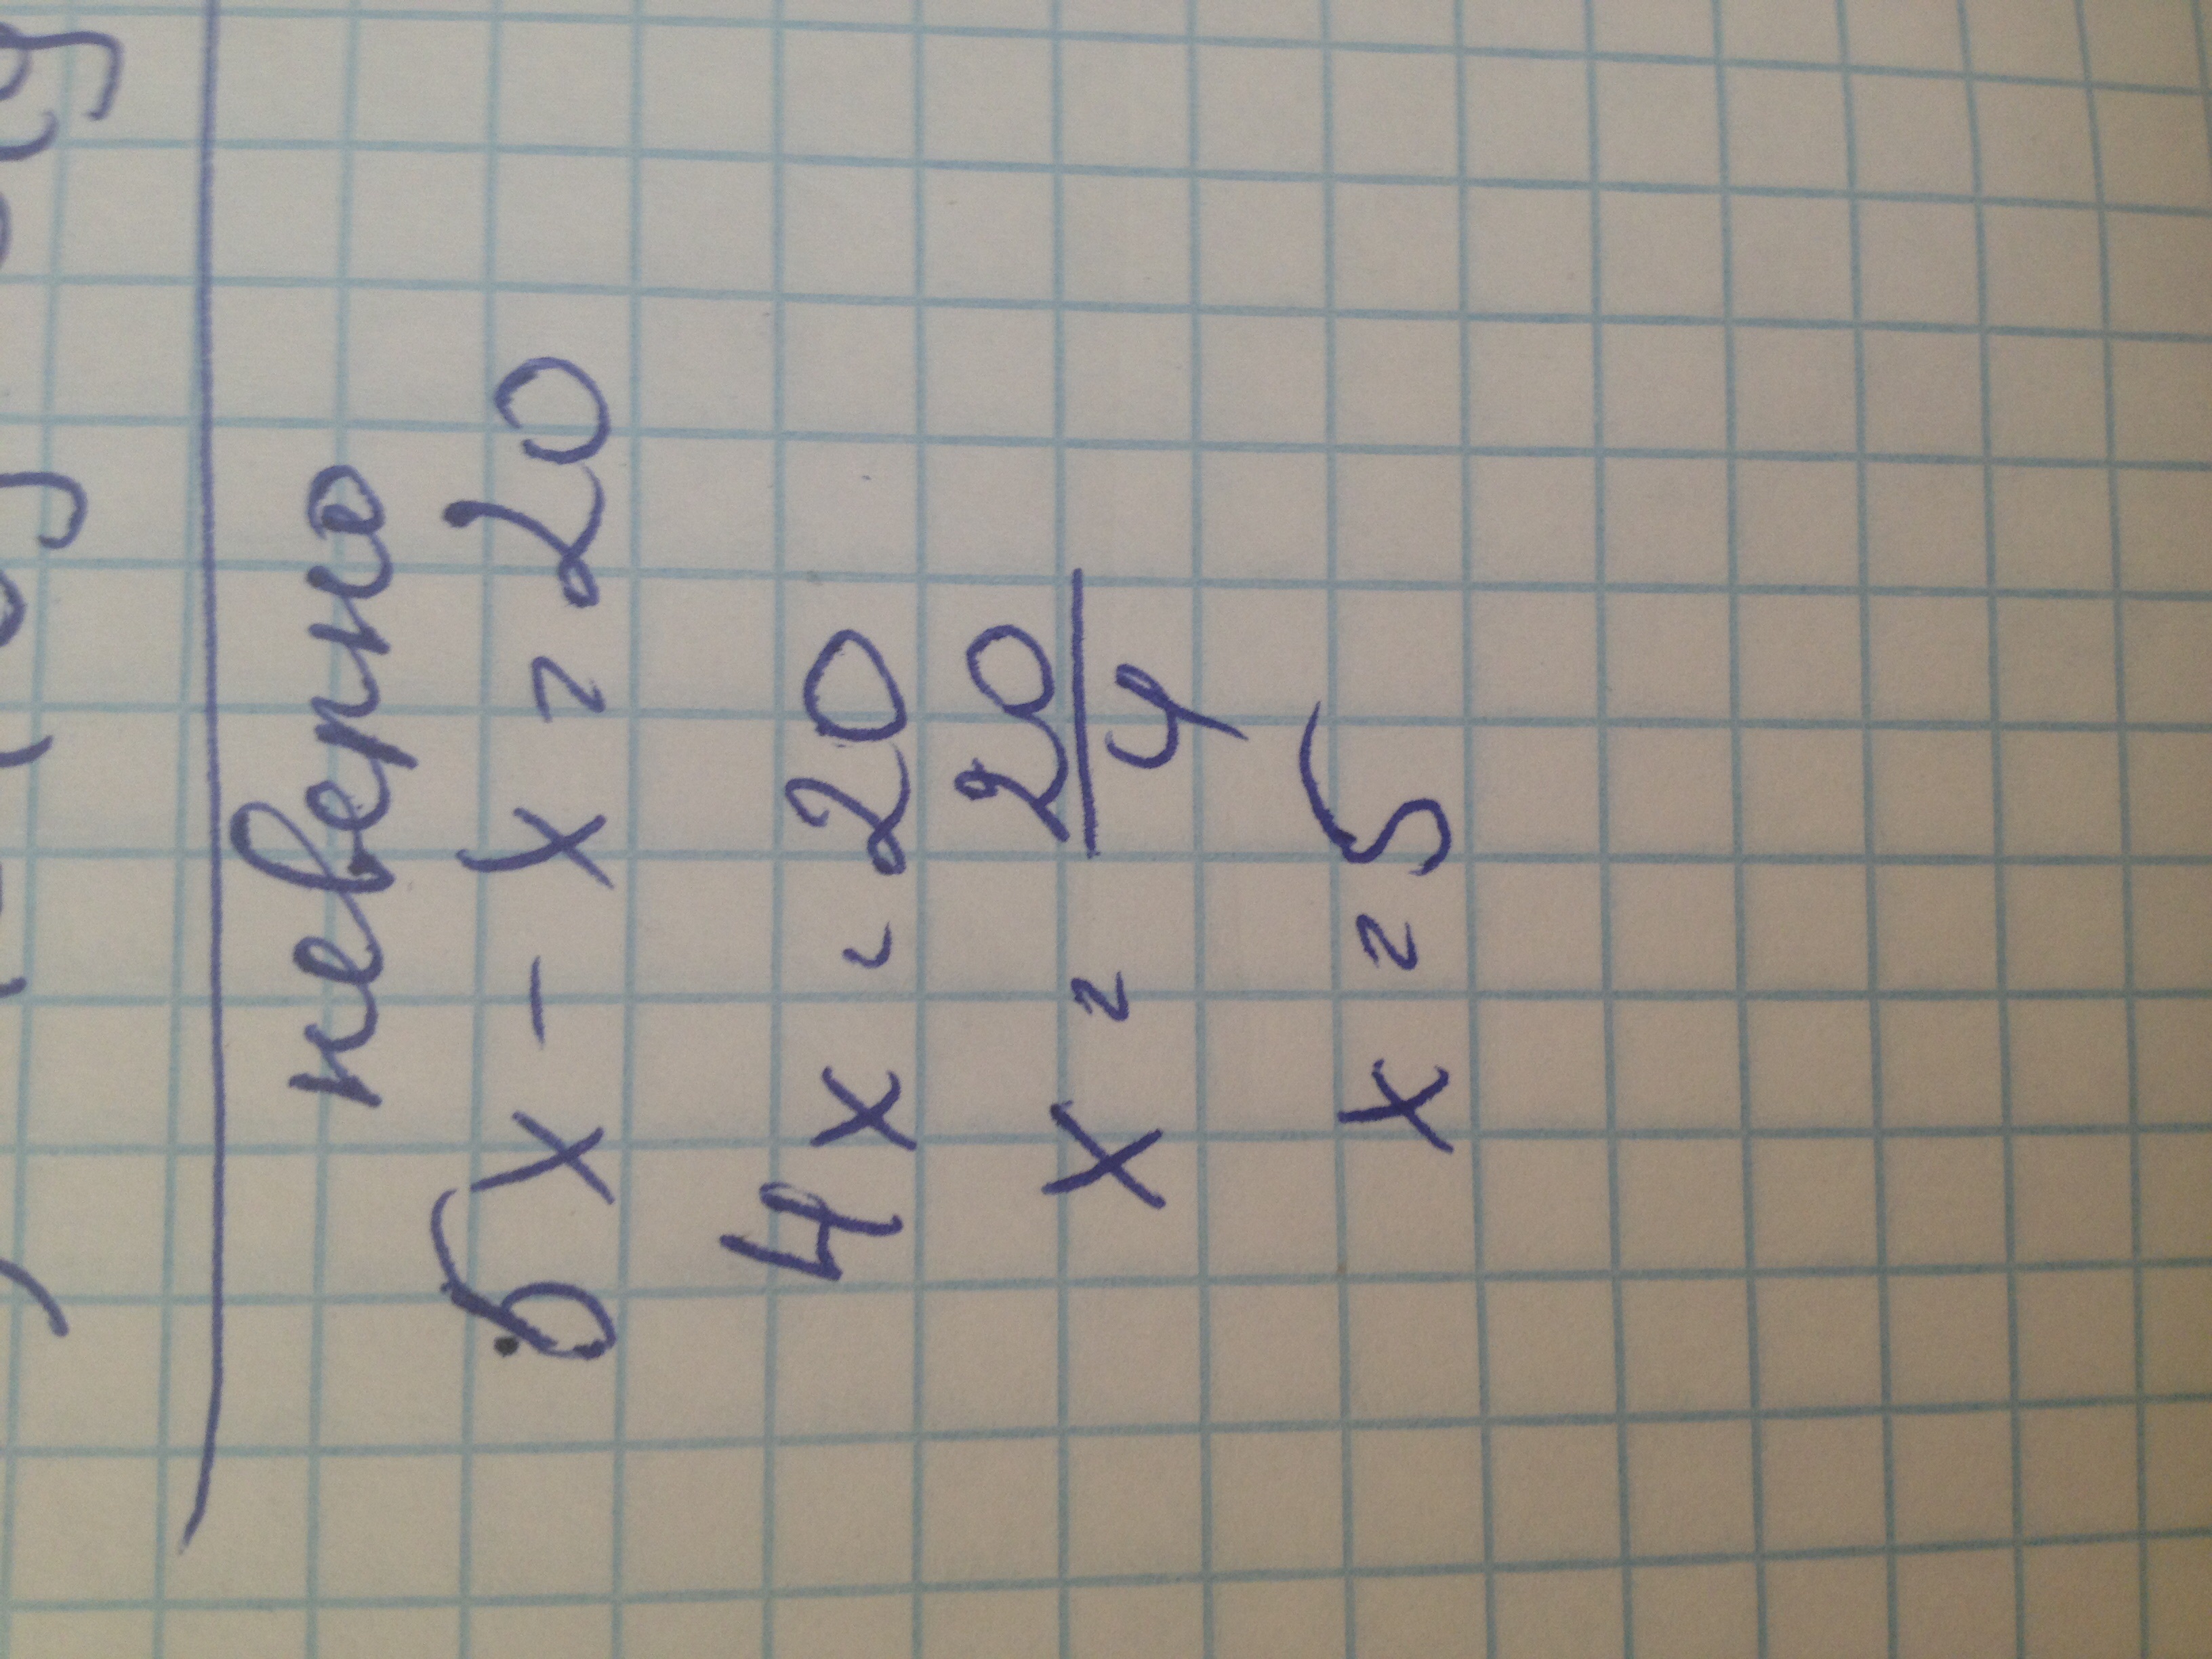 неверно
5x - x = 20
4x = 20
x = 20/4
x = 5